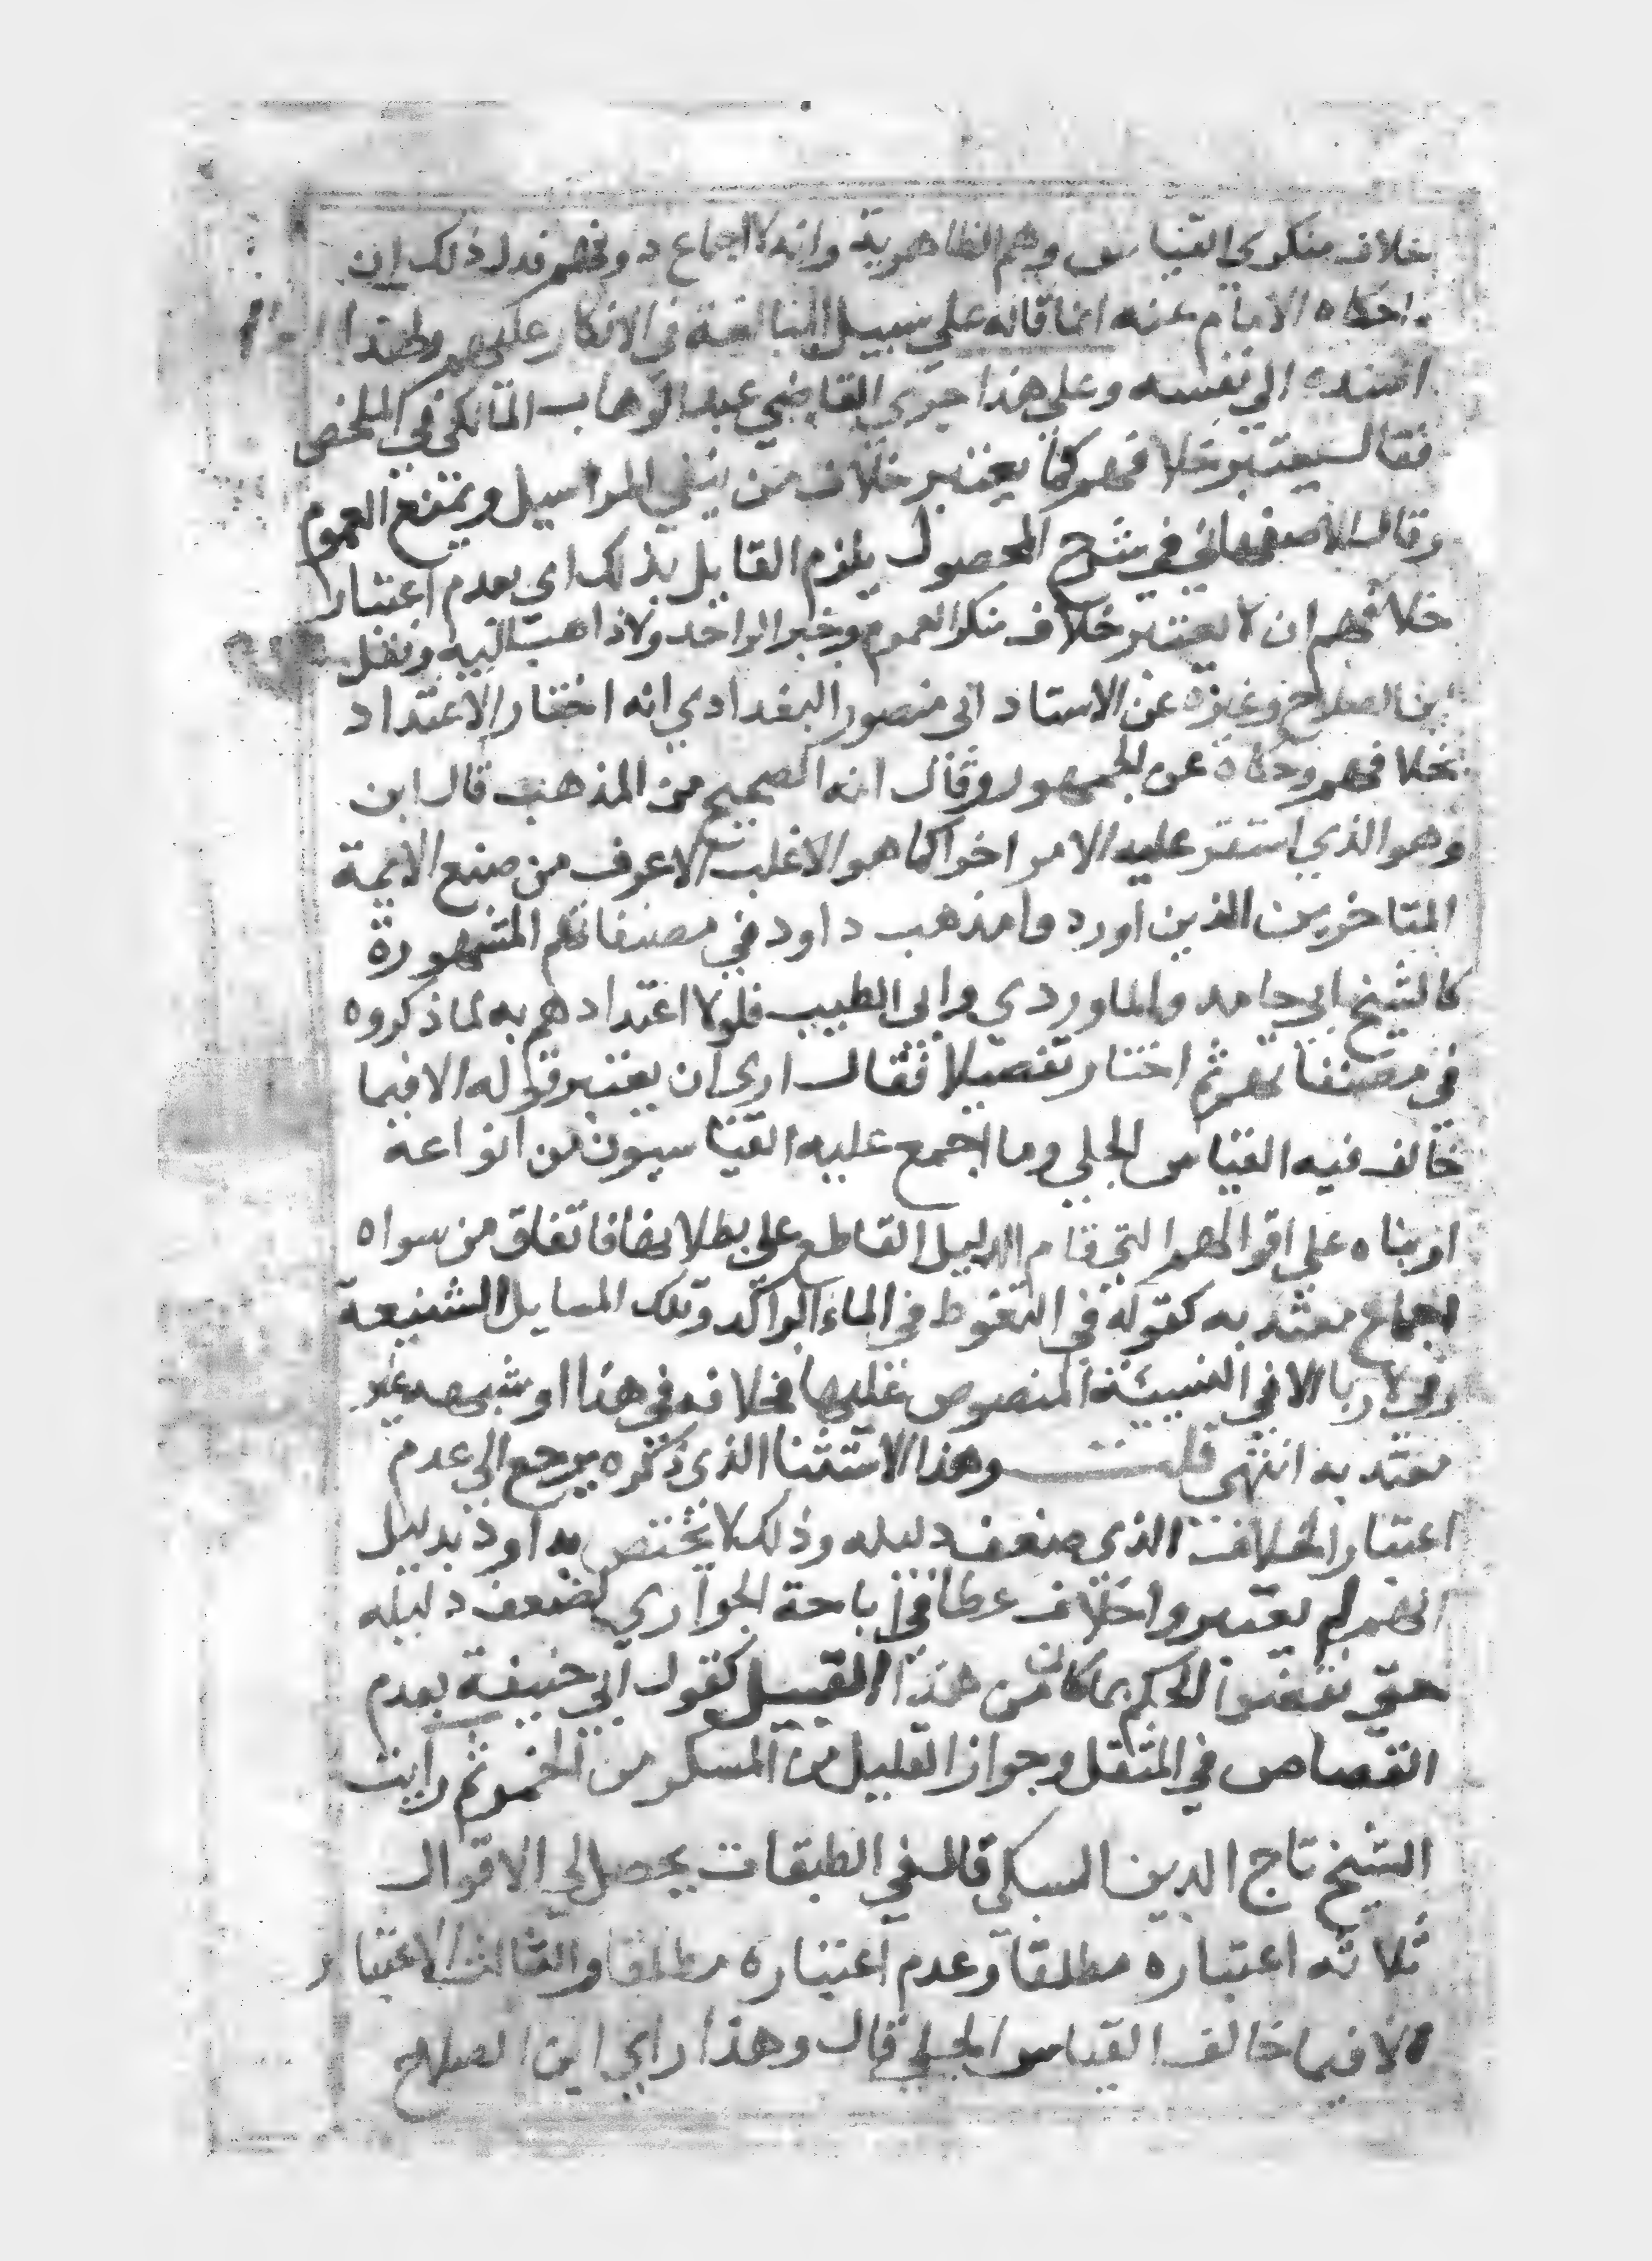 بخلاف منكري القياس وهم الظاهرية وانه لا اجماع دونهم فدل ذلك ان
ما حكاه الامام عنه انما قاله علي سبيل المبالغة في الانكار عليهم ولهذا
اسنده الي نفسه وعلي هذا جري القاضي عبد الوهاب المالكي في الملخص
فقال يعتبر خلافهم كما يعتبر خلاف من ينفي المراسيل ويمنع العموم
وقال الاصفهاني في شرح المحصول يلزم القايل بذلك اي بعدم اعتبار
خلافهم ان لا يعتبر خلاف منكر العموم وخبر الواحد ولا ذاهب اليه ونقل
ابن الصلاح وغيره عن الاستاد ابي منصور البغدادي انه اختار الاعتداد
بخلافهم وحكاه عن الجمهور وقال انه الصحيح من المذهب قال ابن
وهو الذي استقر عليه الامر اخرا كما هو الاغلب الاعرف من صنع الايمة
المتاخرين الذين اوردوا مذهب داود في مصنفاتهم المشهورة
كالشيخ ابي حامد والماوردي وابي الطيب فلولا اعتدادهم به لما ذكروه
في مصنفاتهم ثم اختار تفصيلا فقال اري ان يعتبر قوله الا فيما
خالف فيه القياس الجلي وما اجمع عليه القياسيون من انواعه
او بناه علي اقوالهم التي قام الدليل القاطع علي بطلانها فاتفاق من سواه
اجماع معتد به كقوله في التغوط في الماء الراكد وتلك المسايل الشنيعة
وفي لا ربا الا في النسيئة المنصوص عليها فخلافه في هذا او شبهه غير
معتد به انتهي قلت وهذا الاستثنا الذي ذكره يرجع الي عدم
اعتبار الخلاف الذي ضعف دليله وذلك لا يختص بداود بدليل
انهم لم يعتبروا خلاف عطا في اباحة الجواري لضعف دليله
حتي نقضوا الحكم بما كان من هذا القبيل كقول ابي حنيفة بعدم
القصاص في المثقل وجواز القليل من المسكر من الخمر ثم رايت
الشيخ تاج الدين السبكي قال في الطبقات يحصل لي الاقوال
ثلاثه اعتباره مطلقا وعدم اعتباره مطلقا والثالث الاعتبار
الا فيما خالف القياس الجلي قال وهذا راي ابن الصلاح